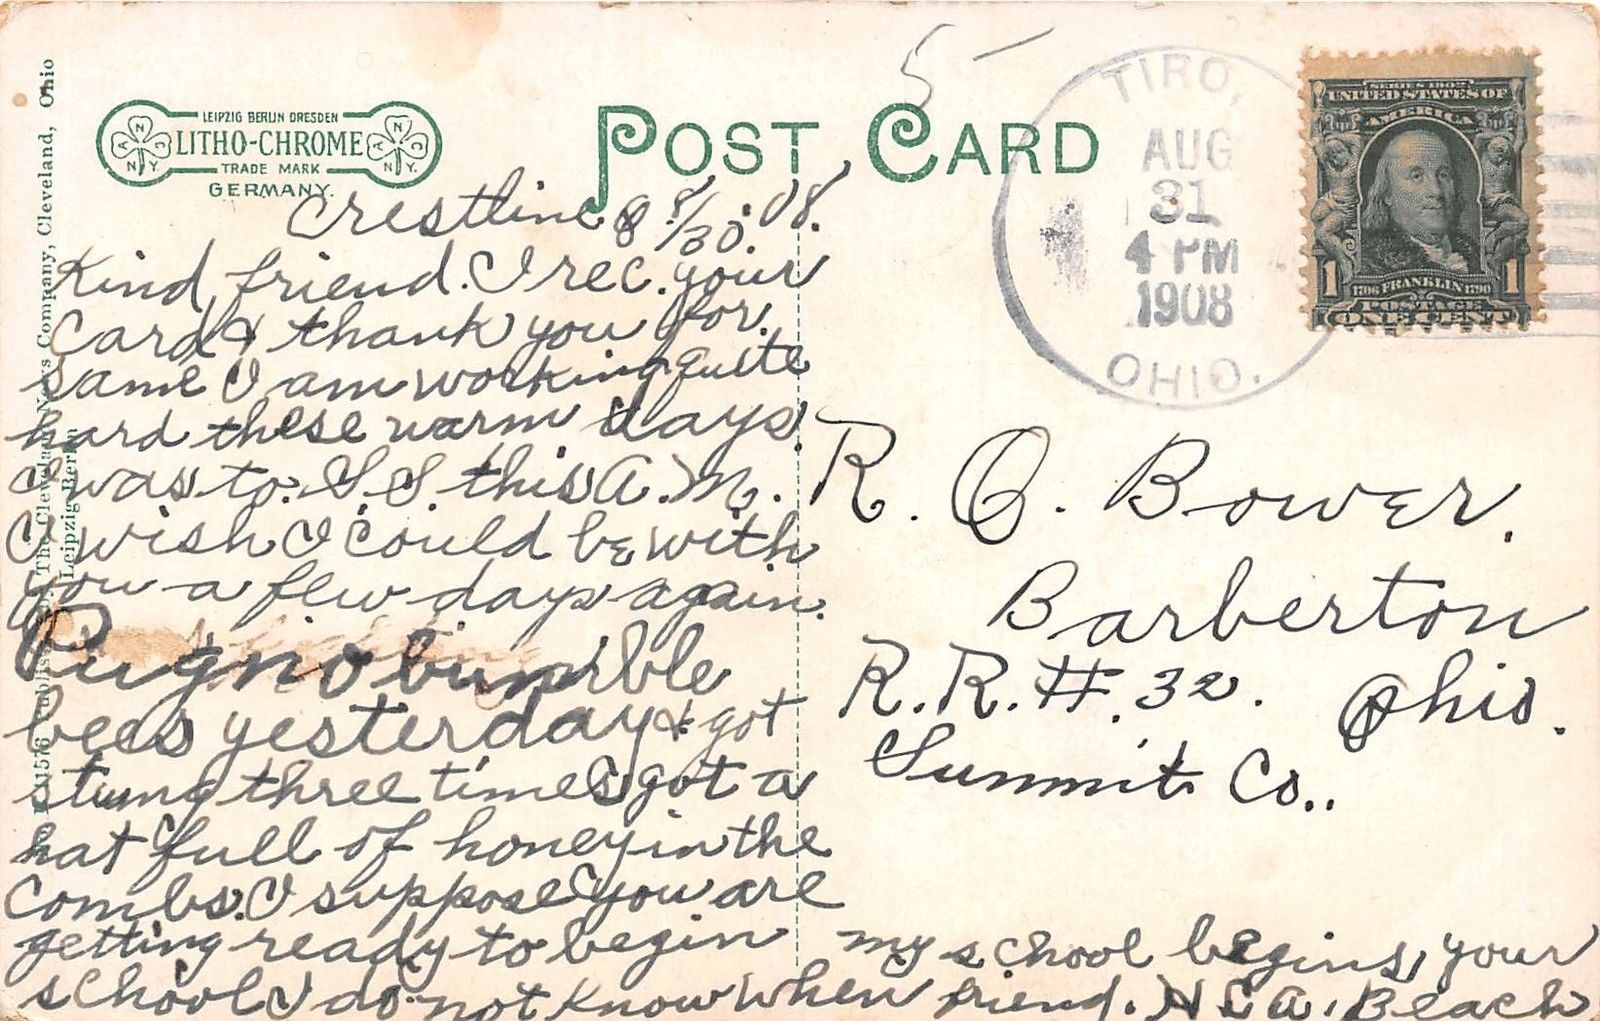 5 -
LEIPZIG BERLIN DRESDEN
LITHO-CHROME
TRADE MARK
GERMANY.
N A N N.Y.
A N C N.Y.
POST CARD
TIRO,
AUG
31
4 PM
1908
OHIO.
SERIES 1902
UNITED STATES OF
AMERICA
1 1
1706 FRANKLIN 1790
POSTAGE
ONE CENT
Crestline 8 8/30. 08.
Kind friend. I rec. your
card & thank you for.
same I am working quite
hard these warm days.
I was to. S. S this A. M.
I wish I could be with
you a few days again.
bumble
bees yesterday & got
stung three times & got a
hat full of honey in the
combs. I suppose you are
getting ready to begin
school I do not know when
my school begins, your
friend. Beach
R. O. Bower.
Barberton
R. R. #. 32. Ohio.
Summit Co..
1576 Published by The Cleveland News Company, Cleveland, Ohio
Leipzig Berlin